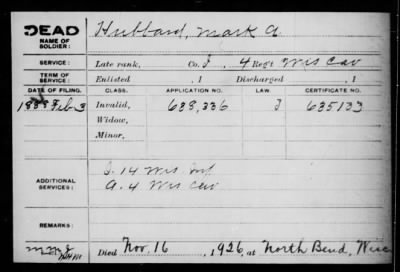 DEAD
NAME OF SOLDIER:
Hubbard, Mark A
SERVICE: Late rank, Co. I, 4 Regt Wis Cav
TERM OF SERVICE: Enlisted , 1 Discharged , 1
DATE OF FILING. CLASS. APPLICATION NO. LAW. CERTIFICATE NO.
1888 Feb 3 Invalid, 638,336 J 635133
Widow,
Minor,
ADDITIONAL SERVICES:
I. 14 Wis. Inf
A. 4 Wis Cav
REMARKS:
Died Nov. 16, 1926, at North Bend, Wisc